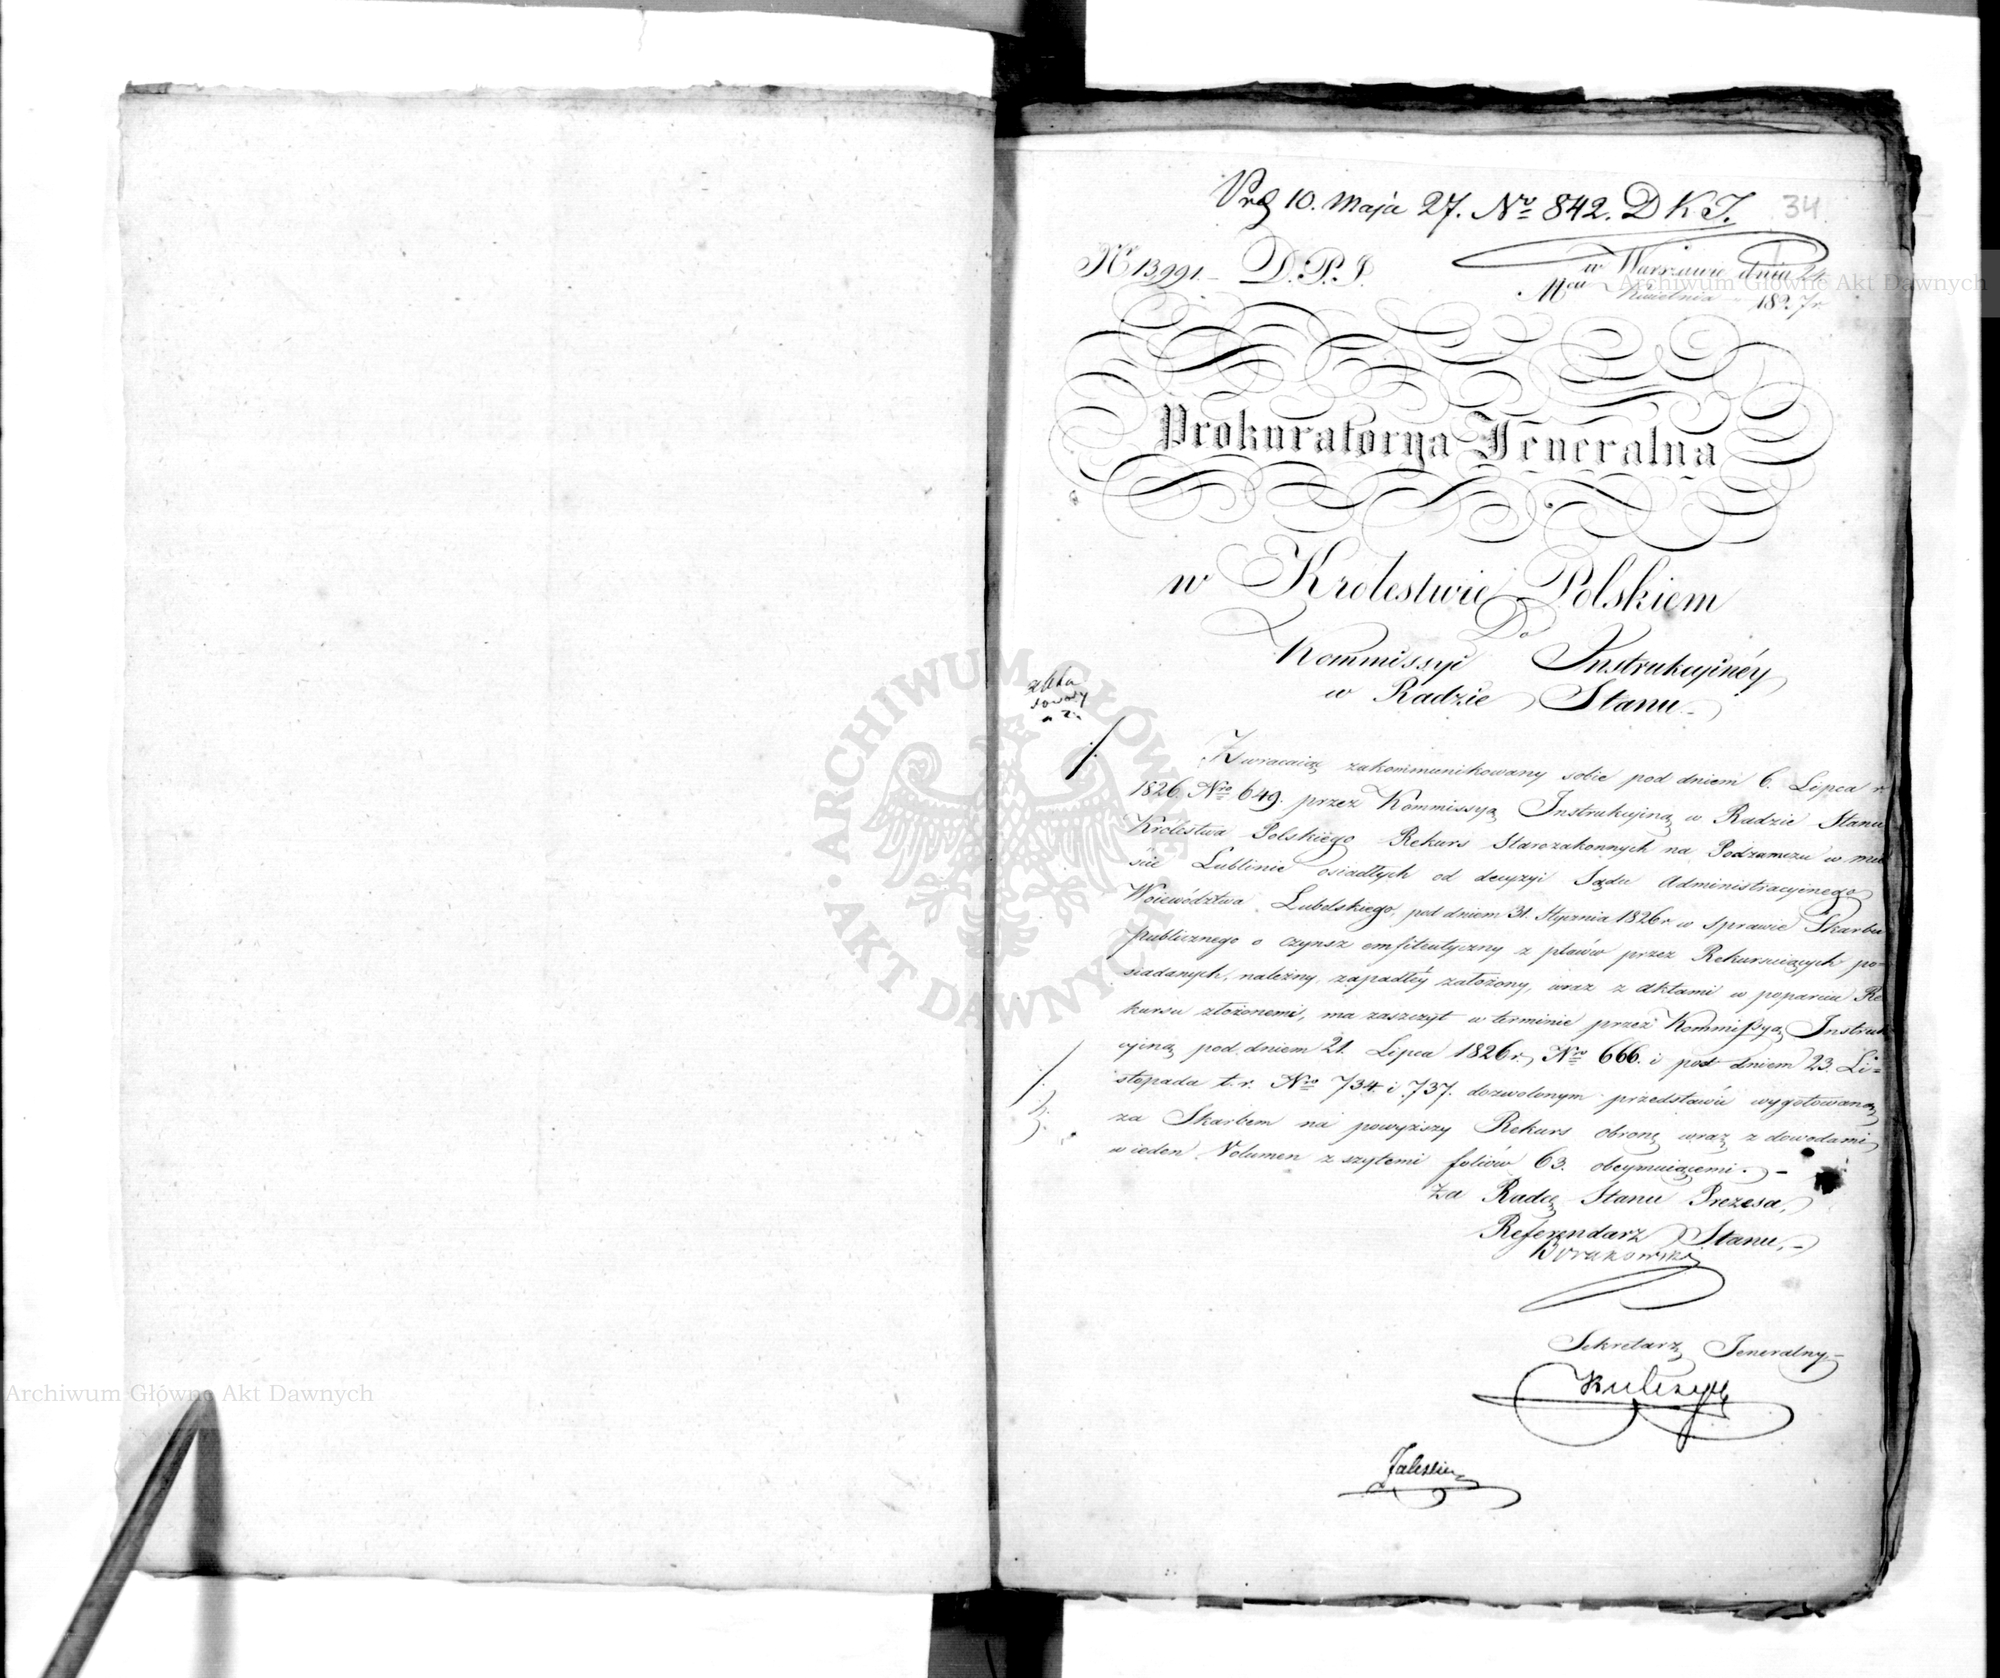 Prz 10. Maja 27. Nro 842. D K I.
34
N 13,991.- D.P.J.
w Warszawie dnia 24
Mca Kwietnia 1827 r.
Prokuratorya Jeneralna
w Królestwie Polskiem
Do
Kommissyi Instrukcyinéy
w Radzie Stanu.-
Zwracaiąc zakommunikowany sobie pod dniem 6. Lipca r.
1826. Nro 649. przez Kommissyą Instrukcyiną w Radzie Stanu
Królestwa Polskiego Rekurs Starozakonnych na Podzamczu w mie
ście Lublinie osiadłych od decyzyi Sądu Administracyinego
Woiewództwa Lubelskiego, pod dniem 31. Stycznia 1826 r. w sprawie Skarbu
publicznego o czynsz emfiteutyczny z placów przez Rekursuiących po-
siadanych, należny, zapadłéy założony, wraz z aktami w poparciu Re
kursu złożonemi, ma zaszczyt w terminie przez Kommissyą Instruk
cyiną pod dniem 21. Lipca 1826 r. Nro 666. i pod dniem 23. Li=
stopada t. r. Nro 734 i 737. dozwolonym przedstawić wygotowaną
za Skarbem na powyższy Rekurs obronę wraz z dowodami
w ieden Volumen z szytemi foliów 63. obeymuiącemi.-
Za Radcę Stanu Prezesa,
Referendarz Stanu,-
Sekretarz Jeneralny,-
Archiwum Główne Akt Dawnych
Archiwum Główne Akt Dawnych
ARCHIWUM GŁÓWNE
AKT DAWNYCH